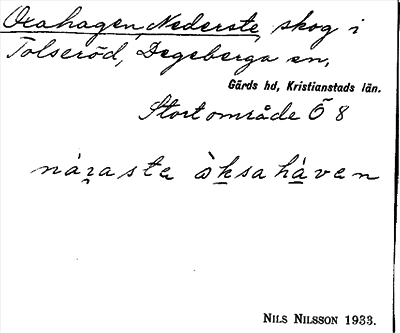 Oxahagen, Nederste, skog i
Tolseröd, Degeberga sn,
Gärds hd, Kristianstads län.
Stort område Ö 8
náṛastɐ òḵsahà̱ven
NILS NILSSON 1933.